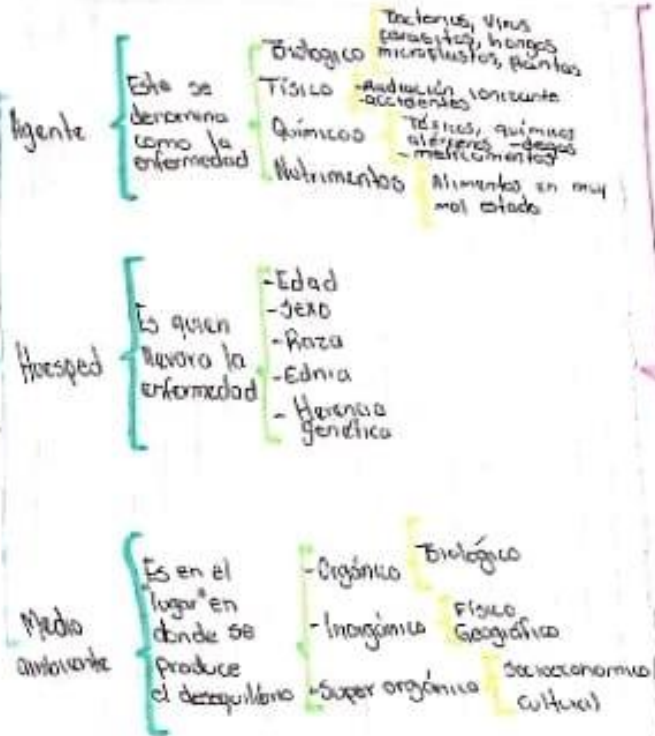 Agente
Este se
denomina
como la
enfermedad
Biologico
Bacterias, Virus
parasitos, hongos
plantas
Físico
-Radiación ionizante
-accidentes
Químicos
Tóxicos, químicos
alergenos -drogas
-medicamentos
Nutrimentos
Alimentos en muy
mal estado
Huesped
Es quien
llevara la
enfermedad
-Edad
-Sexo
-Raza
-Ednia
-Herencia
genética
Medio
ambiente
Es en el
"lugar" en
donde se
produce
el desequilibrio
-Orgánico
Biológico
-Inorgánico
Físico
Geográfico
-Super orgánico
Socioeconomico
cultural